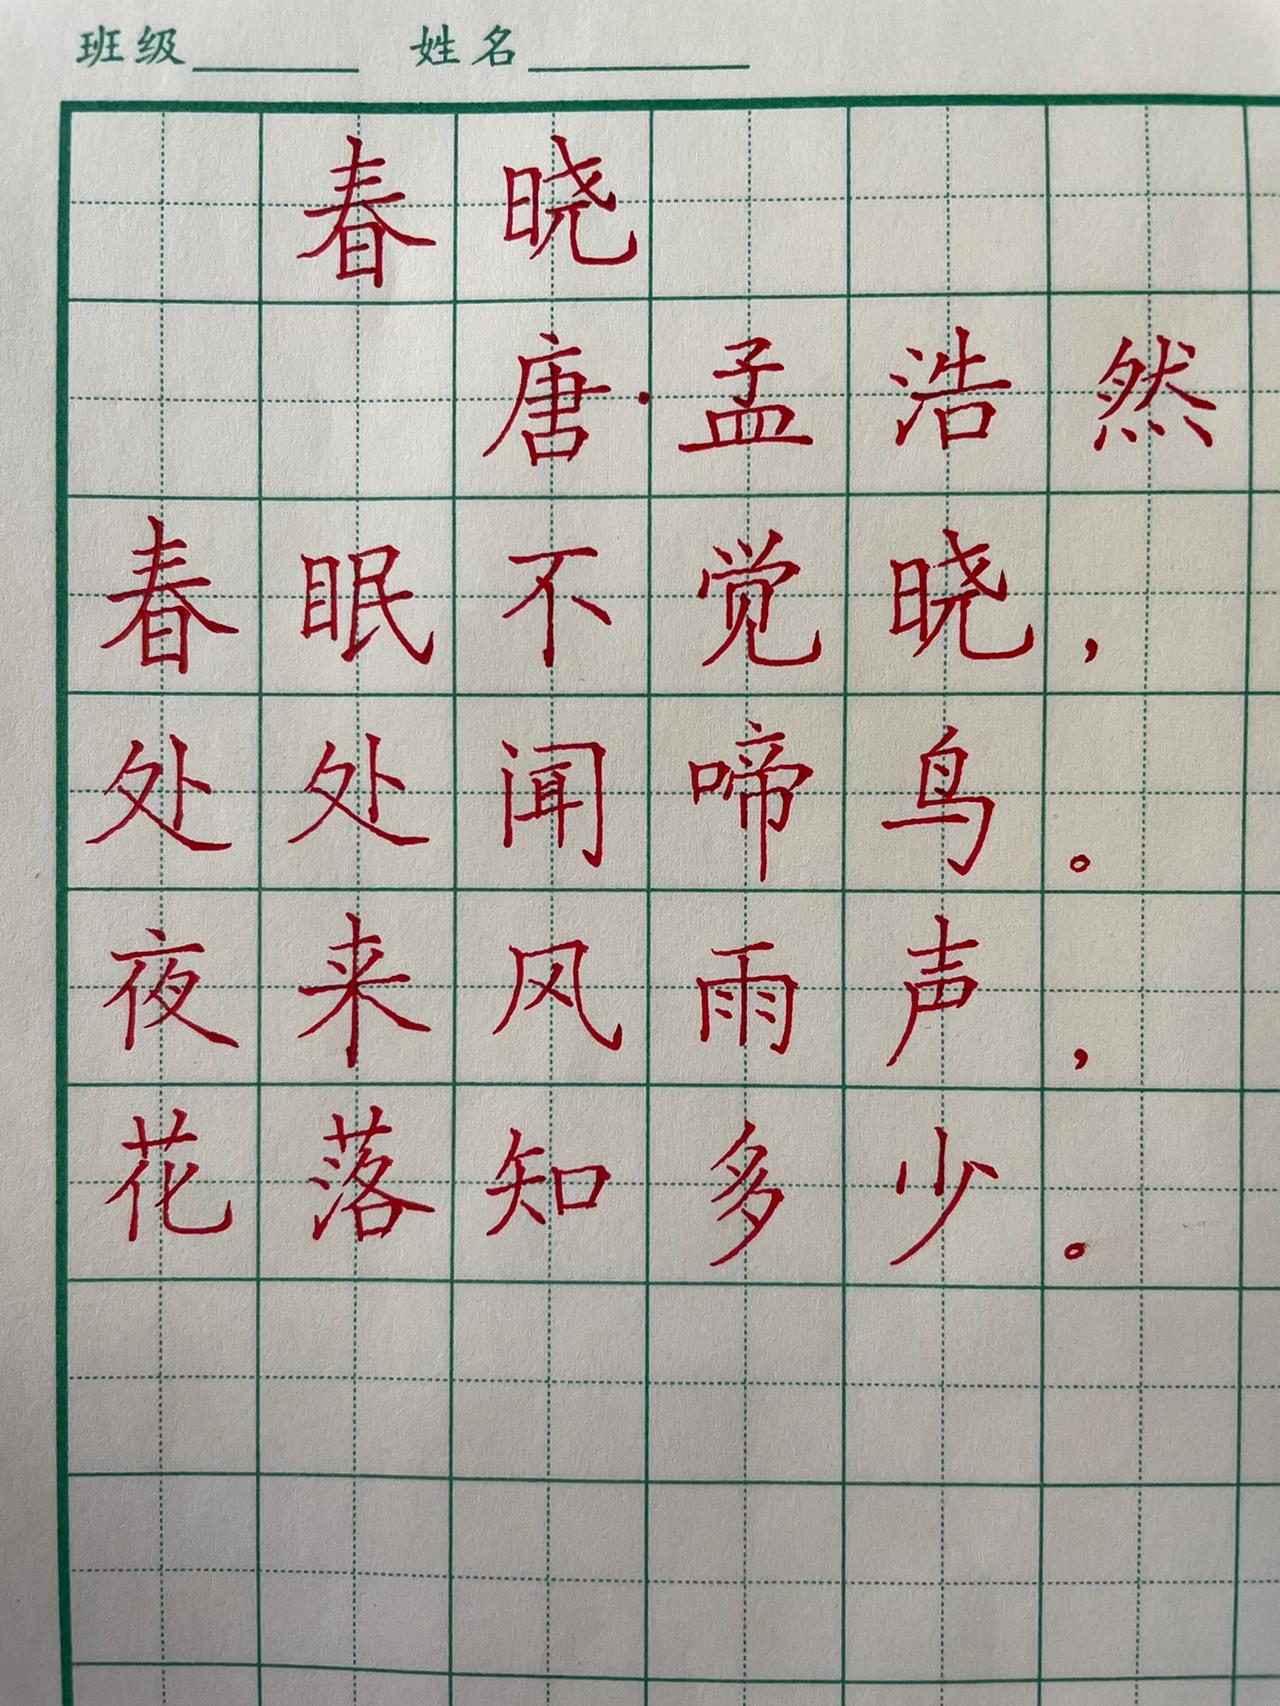 班级 姓名
春晓
唐·孟浩然
春眠不觉晓，
处处闻啼鸟。
夜来风雨声，
花落知多少。